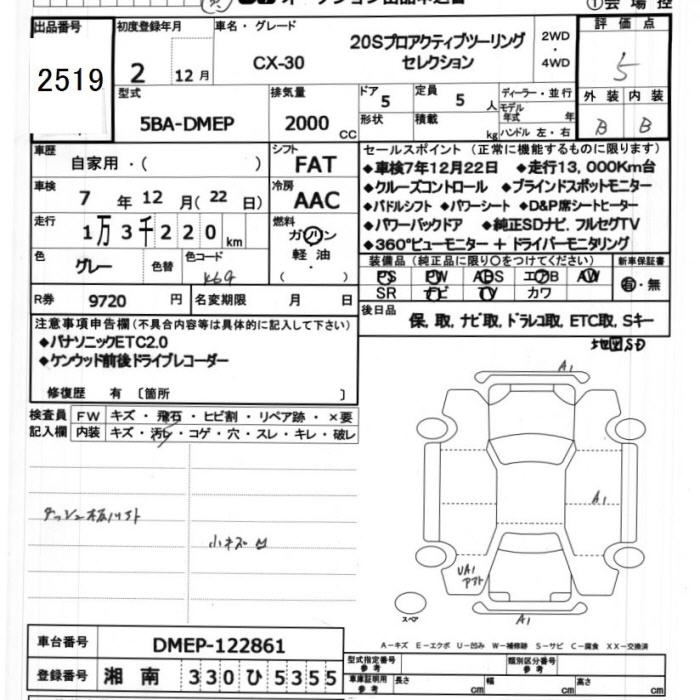 ①会場控
出品番号 初度登録年月 車名・グレード 評価点
2519 2 12月 CX-30 20Sプロアクティブツーリング セレクション 2WD・4WD 5
型式 排気量 ドア 5 定員 5人 ディーラー・並行 外装 内装
5BA-DMEP 2000 CC 形状 積載 kg モデル年式 年 ハンドル 左・右 B B
車歴 自家用・( ) シフト FAT
セールスポイント (正常に機能するものに限ります)
◆車検7年12月22日 ◆走行13,000Km台
車検 7年12月(22日) 冷房 AAC
◆クルーズコントロール ◆ブラインドスポットモニター
◆パドルシフト ◆パワーシート ◆D&P席シートヒーター
走行 1万3千220km 燃料 ガソリン 軽油 ・( )
◆パワーバックドア ◆純正SDナビ, フルセグTV
◆360°ビューモニター + ドライバーモニタリング
色 グレー 色替 色コード
装備品 (純正品に限り〇をつけてください) 新車保証書
PS PW ABS エアB AW 有・無
SR ナビ TV カワ
R券 9720円 名変期限 月 日
後日品 保, 取, ナビ取, ドラレコ取, ETC取, Sキー
地図SD
注意事項申告欄(不具合内容等は具体的に記入して下さい)
◆パナソニックETC2.0
◆ケンウッド前後ドライブレコーダー
修復歴 有 〔箇所 〕
検査員記入欄 FW キズ・飛石・ヒビ割・リペア跡・×要
内装 キズ・汚レ・コゲ・穴・スレ・キレ・破レ
小キズ凹
A1
A1
UA1
A1
スペア
A-キズ E-エクボ U-凹み W-補修跡 S-サビ C-腐食 XX-交換済
車台番号 DMEP-122861
登録番号 湘南 330 ひ 5355
型式指定番号 参考 類別区分番号 参考
車庫証明記載 参考 長さ cm 幅 cm 高さ cm